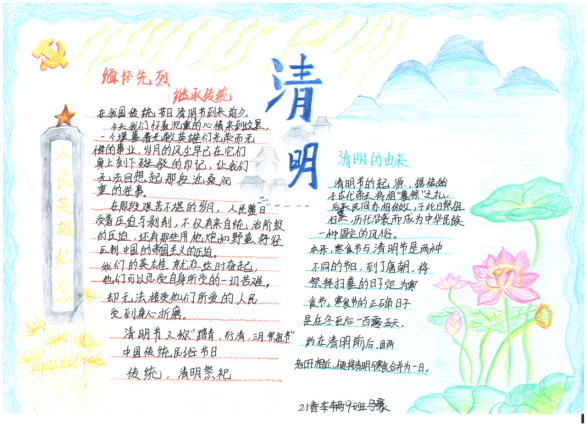 缅怀先烈
继承传统
清明
人民英雄纪念
在我国传统节日清明节到来前夕,
今天我们怀着沉重的心情来到这里,
一个埋葬着无数英雄们光荣而无
偿的事业,岁月的风尘早已在它们
身上刻下残败的印记,让我们
无法回想起那段沧桑沉
重的往事
在那段艰苦不堪的岁月,人民整日
受着压迫与剥削,不仅有来自统治阶级
的压迫,还有那些用炮和野蛮
中国的帝国主义的压迫。
我们的英雄就在此时奋起,
他们可以忍受自身所受的一切苦难,
却无法接受他们所爱的人民
受到身心折磨。
清明节又称"踏青,行清,三月节,祭祖节"
中国传统民俗节日
传统,清明祭祀
清明的由来
清明节的起源,据传始
于古代帝王将相"墓祭"之礼,
后来民间亦相仿效,于此日祭祖
扫墓,历代沿袭而成为中华民族
一种固定的风俗。
本来,寒食节与清明节是两种
不同的节日,到了唐朝,将
祭拜扫墓的日子定为寒
食节。寒食节的正确日子
是在冬至后一百零五天,
约在清明前后,因两
者日子相近,便将清明与寒食合并为一日。
21青车辆9班马豪